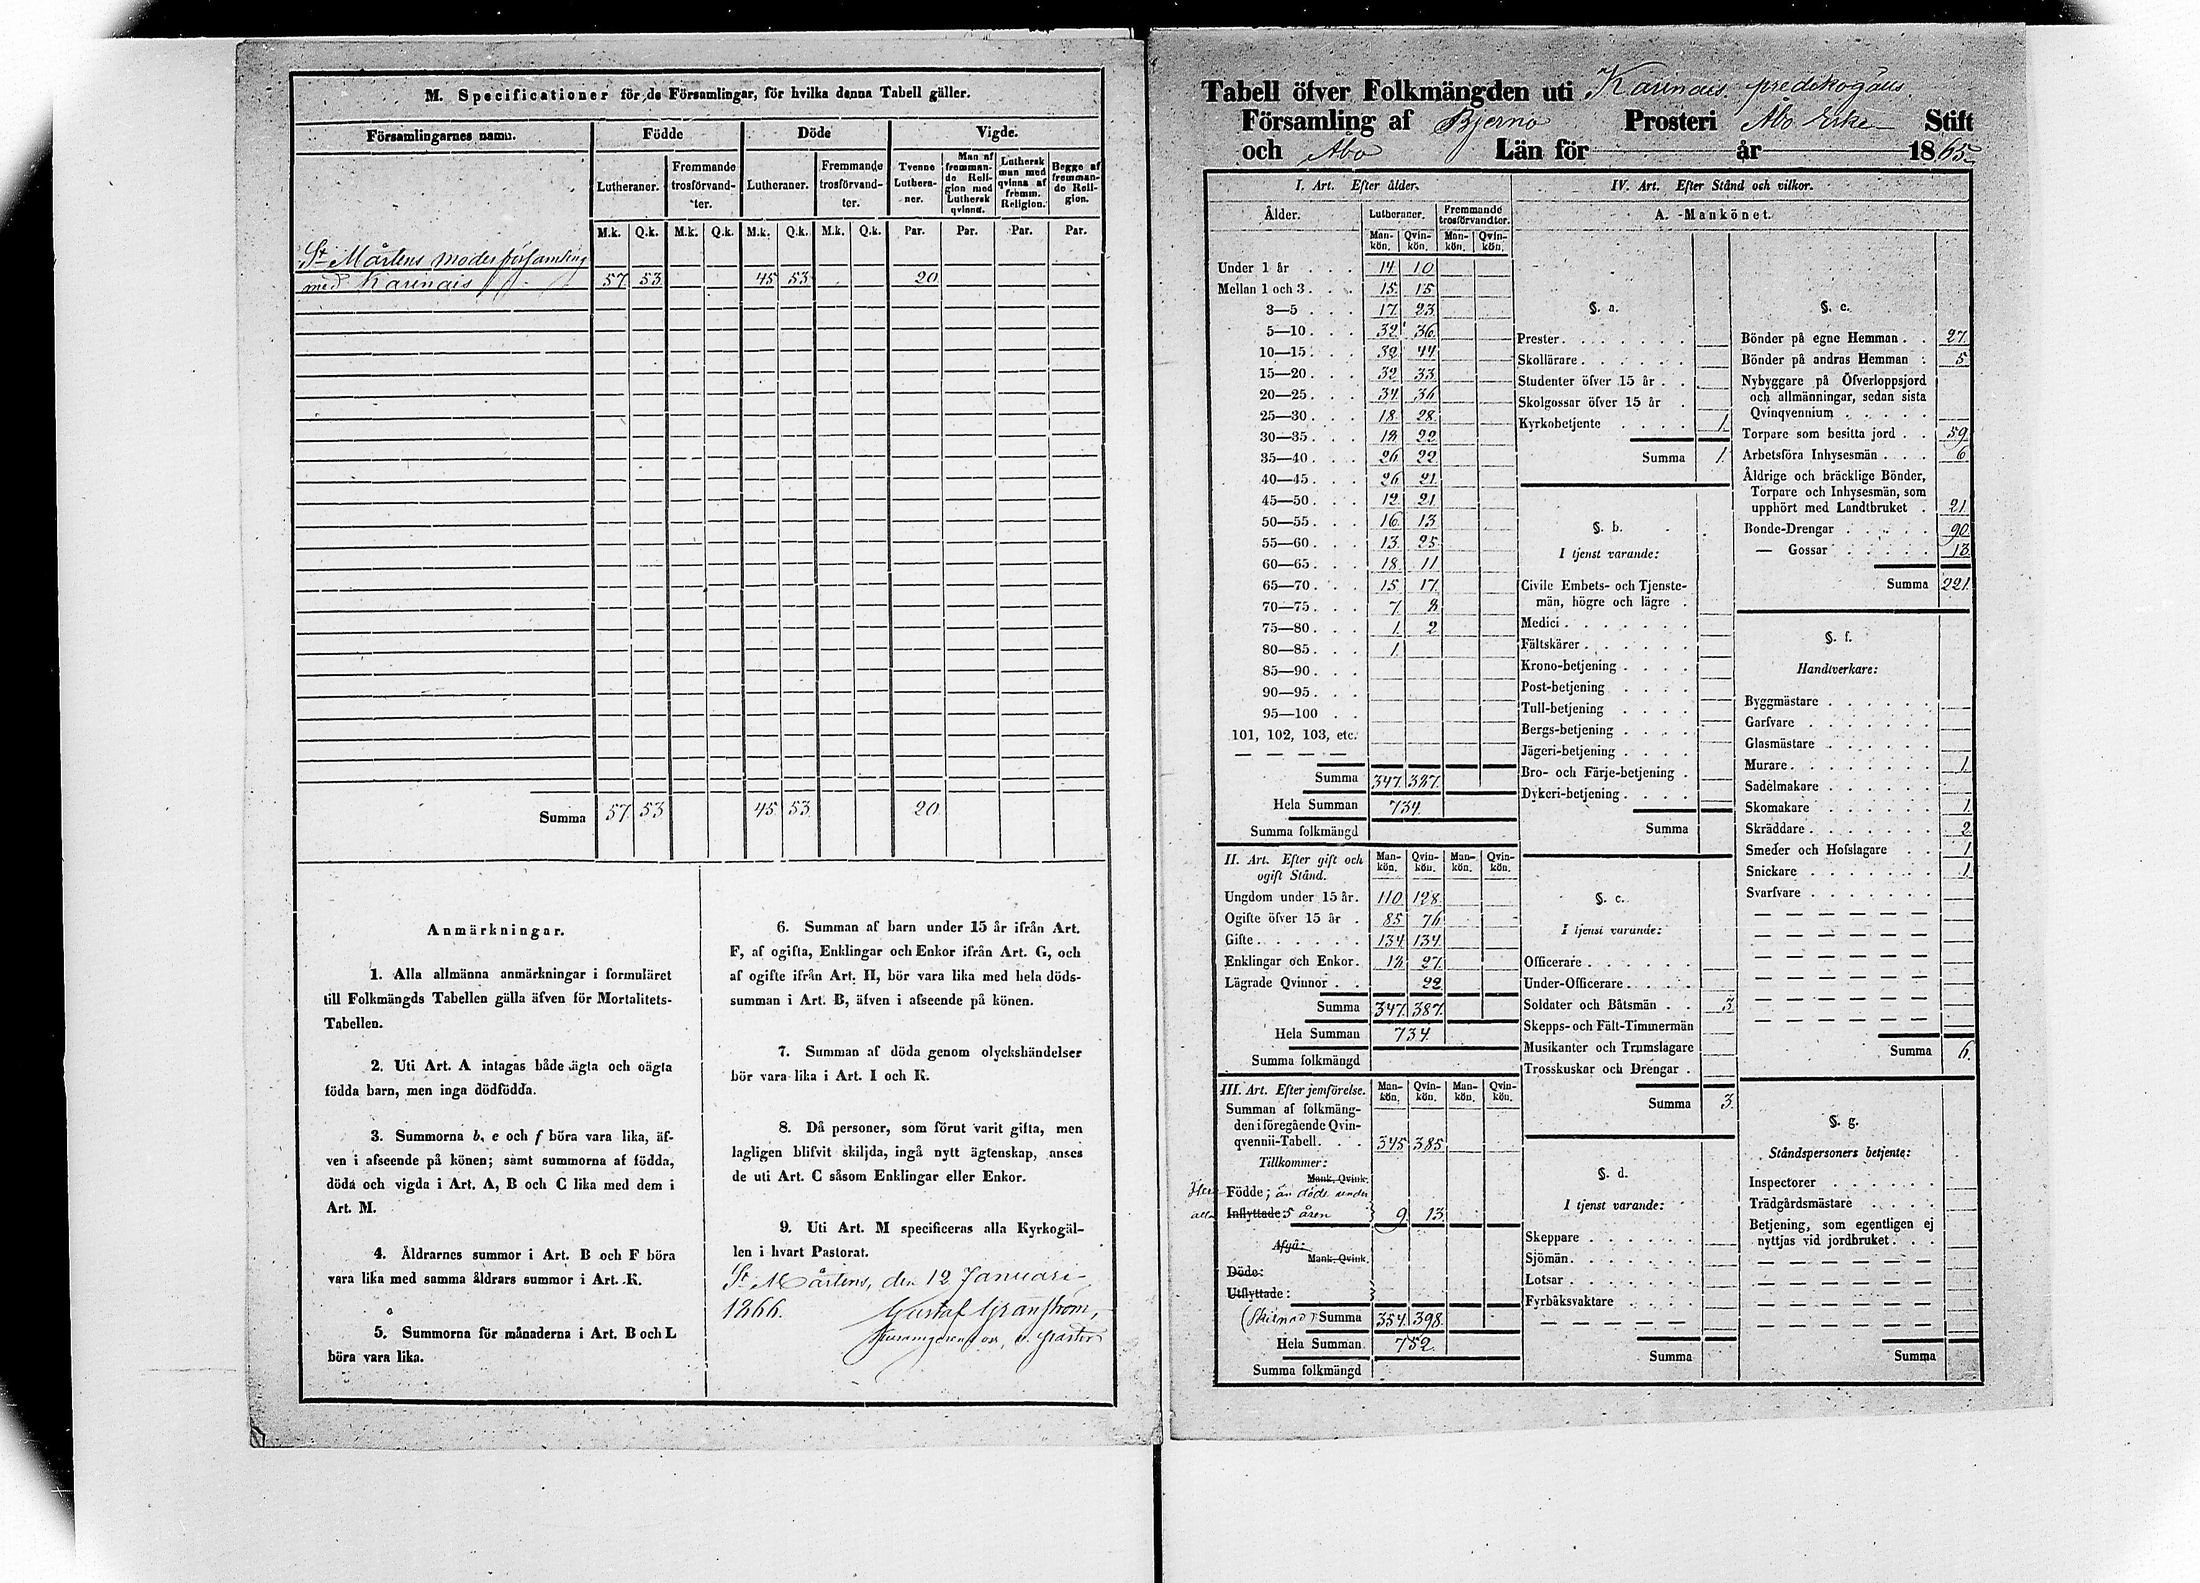 M. Specificationer för de Församlingar, för hvilka denna Tabell gäller.
Församlingarnes namn. Födde Döde Vigde.
Lutheraner. Fremmande trosförvandter. Lutheraner. Fremmande trosförvandter. Tvenne Lutheraner. Man af fremmande Religion med Luthersk qvinna. Luthersk man med qvinna af fremm. Religion. Begge af fremmande Religion.
M.k. Q.k. M.k. Q.k. M.k. Q.k. M.k. Q.k. Par. Par. Par. Par.
St Mårtens moderförsamling
med Karinais 57 53 45 53 20
Summa 57. 53 45 53 20
Anmärkningar.
1. Alla allmänna anmärkningar i formuläret
till Folkmängds Tabellen gälla äfven för Mortalitets-
Tabellen.
2. Uti Art. A intagas både ägta och oägta
födda barn, men inga dödfödda.
3. Summorna b, e och f böra vara lika, äf-
ven i afseende på könen; samt summorna af födda,
döda och vigda i Art. A, B och C lika med dem i
Art. M.
4. Åldrarnes summor i Art. B och F böra
vara lika med samma åldrars summor i Art. K.
5. Summorna för månaderna i Art. B och L
böra vara lika.
6. Summan af barn under 15 år ifrån Art.
F, af ogifta, Enklingar och Enkor ifrån Art. G, och
af ogifte ifrån Art. H, bör vara lika med hela döds-
summan i Art. B, äfven i afseende på könen.
7. Summan af döda genom olyckshändelser
bör vara lika i Art. I och K.
8. Då personer, som förut varit gifta, men
lagligen blifvit skiljda, ingå nytt ägtenskap, anses
de uti Art. C såsom Enklingar eller Enkor.
9. Uti Art. M specificeras alla Kyrkogäl-
len i hvart Pastorat.
St Mårtens, den 12 Januari
1866. Gustaf Granström,
Tabell öfver Folkmängden uti Karinais predikogälls
Församling af Bjerno Prosteri Åbo Erke Stift
och Åbo Län för år 1865
I. Art. Efter ålder.
Ålder. Lutheraner. Fremmande trosförvandter.
Mankön. Qvinkön. Mankön. Qvinkön.
Under 1 år 14 10
Mellan 1 och 3 15 15
3—5 17 23
5—10 32 36
10—15 32 44
15—20 32 33
20—25 34 36
25—30 18 28
30—35 18 22
35—40 26 22
40—45 26 21
45—50 12 21
50—55 16 13
55—60 13 25
60—65 18 11
65—70 15 17
70—75 7 8
75—80 1 2
80—85 1
85—90
90—95
95—100
101, 102, 103, etc.
Summa 347 387
Hela Summan 734
Summa folkmängd
II. Art. Efter gift och ogift Stånd. Mankön. Qvinkön. Mankön. Qvinkön.
Ungdom under 15 år. 110 128
Ogifte öfver 15 år 85 76
Gifte 134 134
Enklingar och Enkor. 18 27
Lägrade Qvinnor 22
Summa 347 387
Hela Summan 734
Summa folkmängd
III. Art. Efter jemförelse. Mankön. Qvinkön. Mankön. Qvinkön.
Summan af folkmäng-
den i föregående Qvin-
qvennii-Tabell. 345 385
Tillkommer:
Mank. Qvink.
Födde; än döde under
Inflyttade: 5 åren 9 13
Afgå:
Mank. Qvink.
Döde:
Utflyttade:
Summa 354 398
Hela Summan 752
Summa folkmängd
IV. Art. Efter Stånd och vilkor.
A. Mankönet.
§. a.
Prester
Skollärare
Studenter öfver 15 år
Skolgossar öfver 15 år
Kyrkobetjente 1
Summa 1
§. b.
I tjenst varande:
Civile Embets- och Tjenste-
män, högre och lägre
Medici
Fältskärer
Krono-betjening
Post-betjening
Tull-betjening
Bergs-betjening
Jägeri-betjening
Bro- och Färje-betjening
Dykeri-betjening
Summa
§. c.
I tjenst varande:
Officerare
Under-Officerare
Soldater och Båtsmän 3
Skepps- och Fält-Timmermän
Musikanter och Trumslagare
Trosskuskar och Drengar
Summa 3
§. d.
I tjenst varande:
Skeppare
Sjömän
Lotsar
Fyrbåksvaktare
Summa
§. e.
Bönder på egne Hemman 27
Bönder på andras Hemman 5
Nybyggare på Öfverloppsjord
och allmänningar, sedan sista
Qvinqvennium
Torpare som besitta jord 59
Arbetsföra Inhysesmän 6
Åldrige och bräcklige Bönder,
Torpare och Inhysesmän, som
upphört med Landtbruket 21
Bonde-Drengar 90
— Gossar 13
Summa 221
§. f.
Handtverkare:
Byggmästare
Garfvare
Glasmästare
Murare 1
Sadelmakare
Skomakare 1
Skräddare 2
Smeder och Hofslagare 1
Snickare 1
Svarfvare
Summa 6
§. g.
Ståndspersoners betjente:
Inspectorer
Trädgårdsmästare
Betjening, som egentligen ej
nyttjas vid jordbruket
Summa